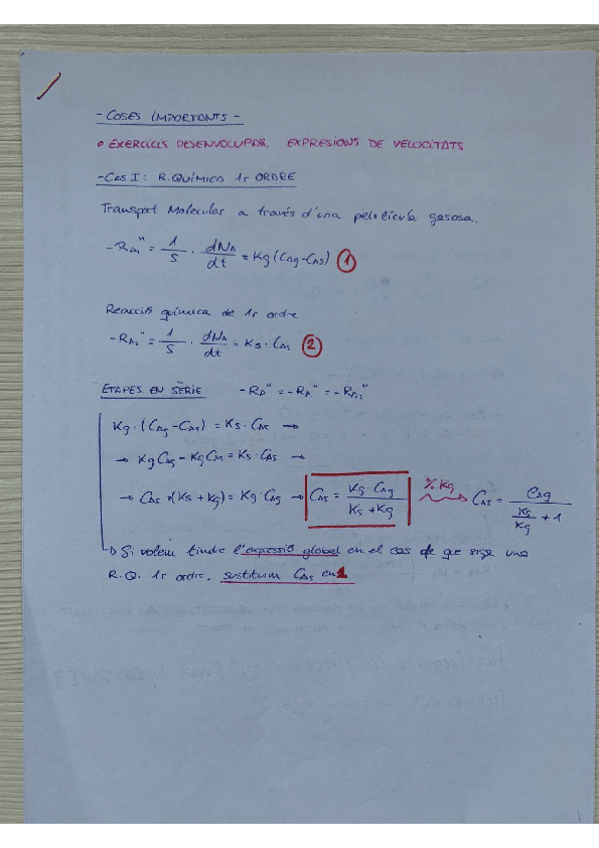 - COSES IMPORTANTS -
• EXERCICIS DESENVOLUPAR EXPRESIONS DE VELOCITATS
- CAS I : R. QUÍMICA 1r ORDRE
Transport Molecular a través d'una pelolícula gasosa.
-R_A₁" = 1/S · dN_A/dt = Kg (C_Ag - C_AS) ①
Reacció química de 1r ordre
-R_A₂" = 1/S · dN_A/dt = Ks · C_AS ②
ETAPES EN SÈRIE -R_A" = -R_A₁" = -R_A₂"
Kg · (C_Ag - C_AS) = Ks · C_AS →
→ Kg C_Ag - Kg C_AS = Ks · C_AS →
→ C_AS · (Ks + Kg) = Kg · C_Ag → C_AS = Kg · C_Ag / Ks + Kg % Kg C_AS = C_Ag / Ks/Kg + 1
Si volem tindre l'expressió global en el cas de que siga una
R.Q. 1r ordre, sustituim C_AS en 1